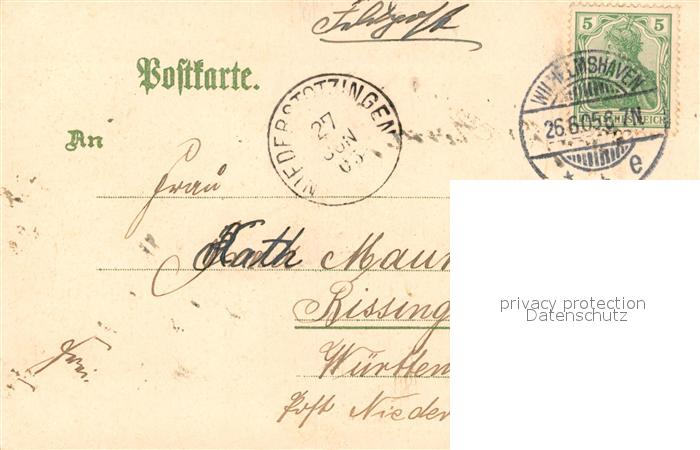 Feldpost
5 5
DEUTSCHES REICH
WILHELMSHAVEN
26.6.05.6-7N
* e
Postkarte.
NIEDERSTOTZINGEN
27
An
Frau
Kath Maur
Bissing
Württem
Post Nieder
frei.
privacy protection
Datenschutz